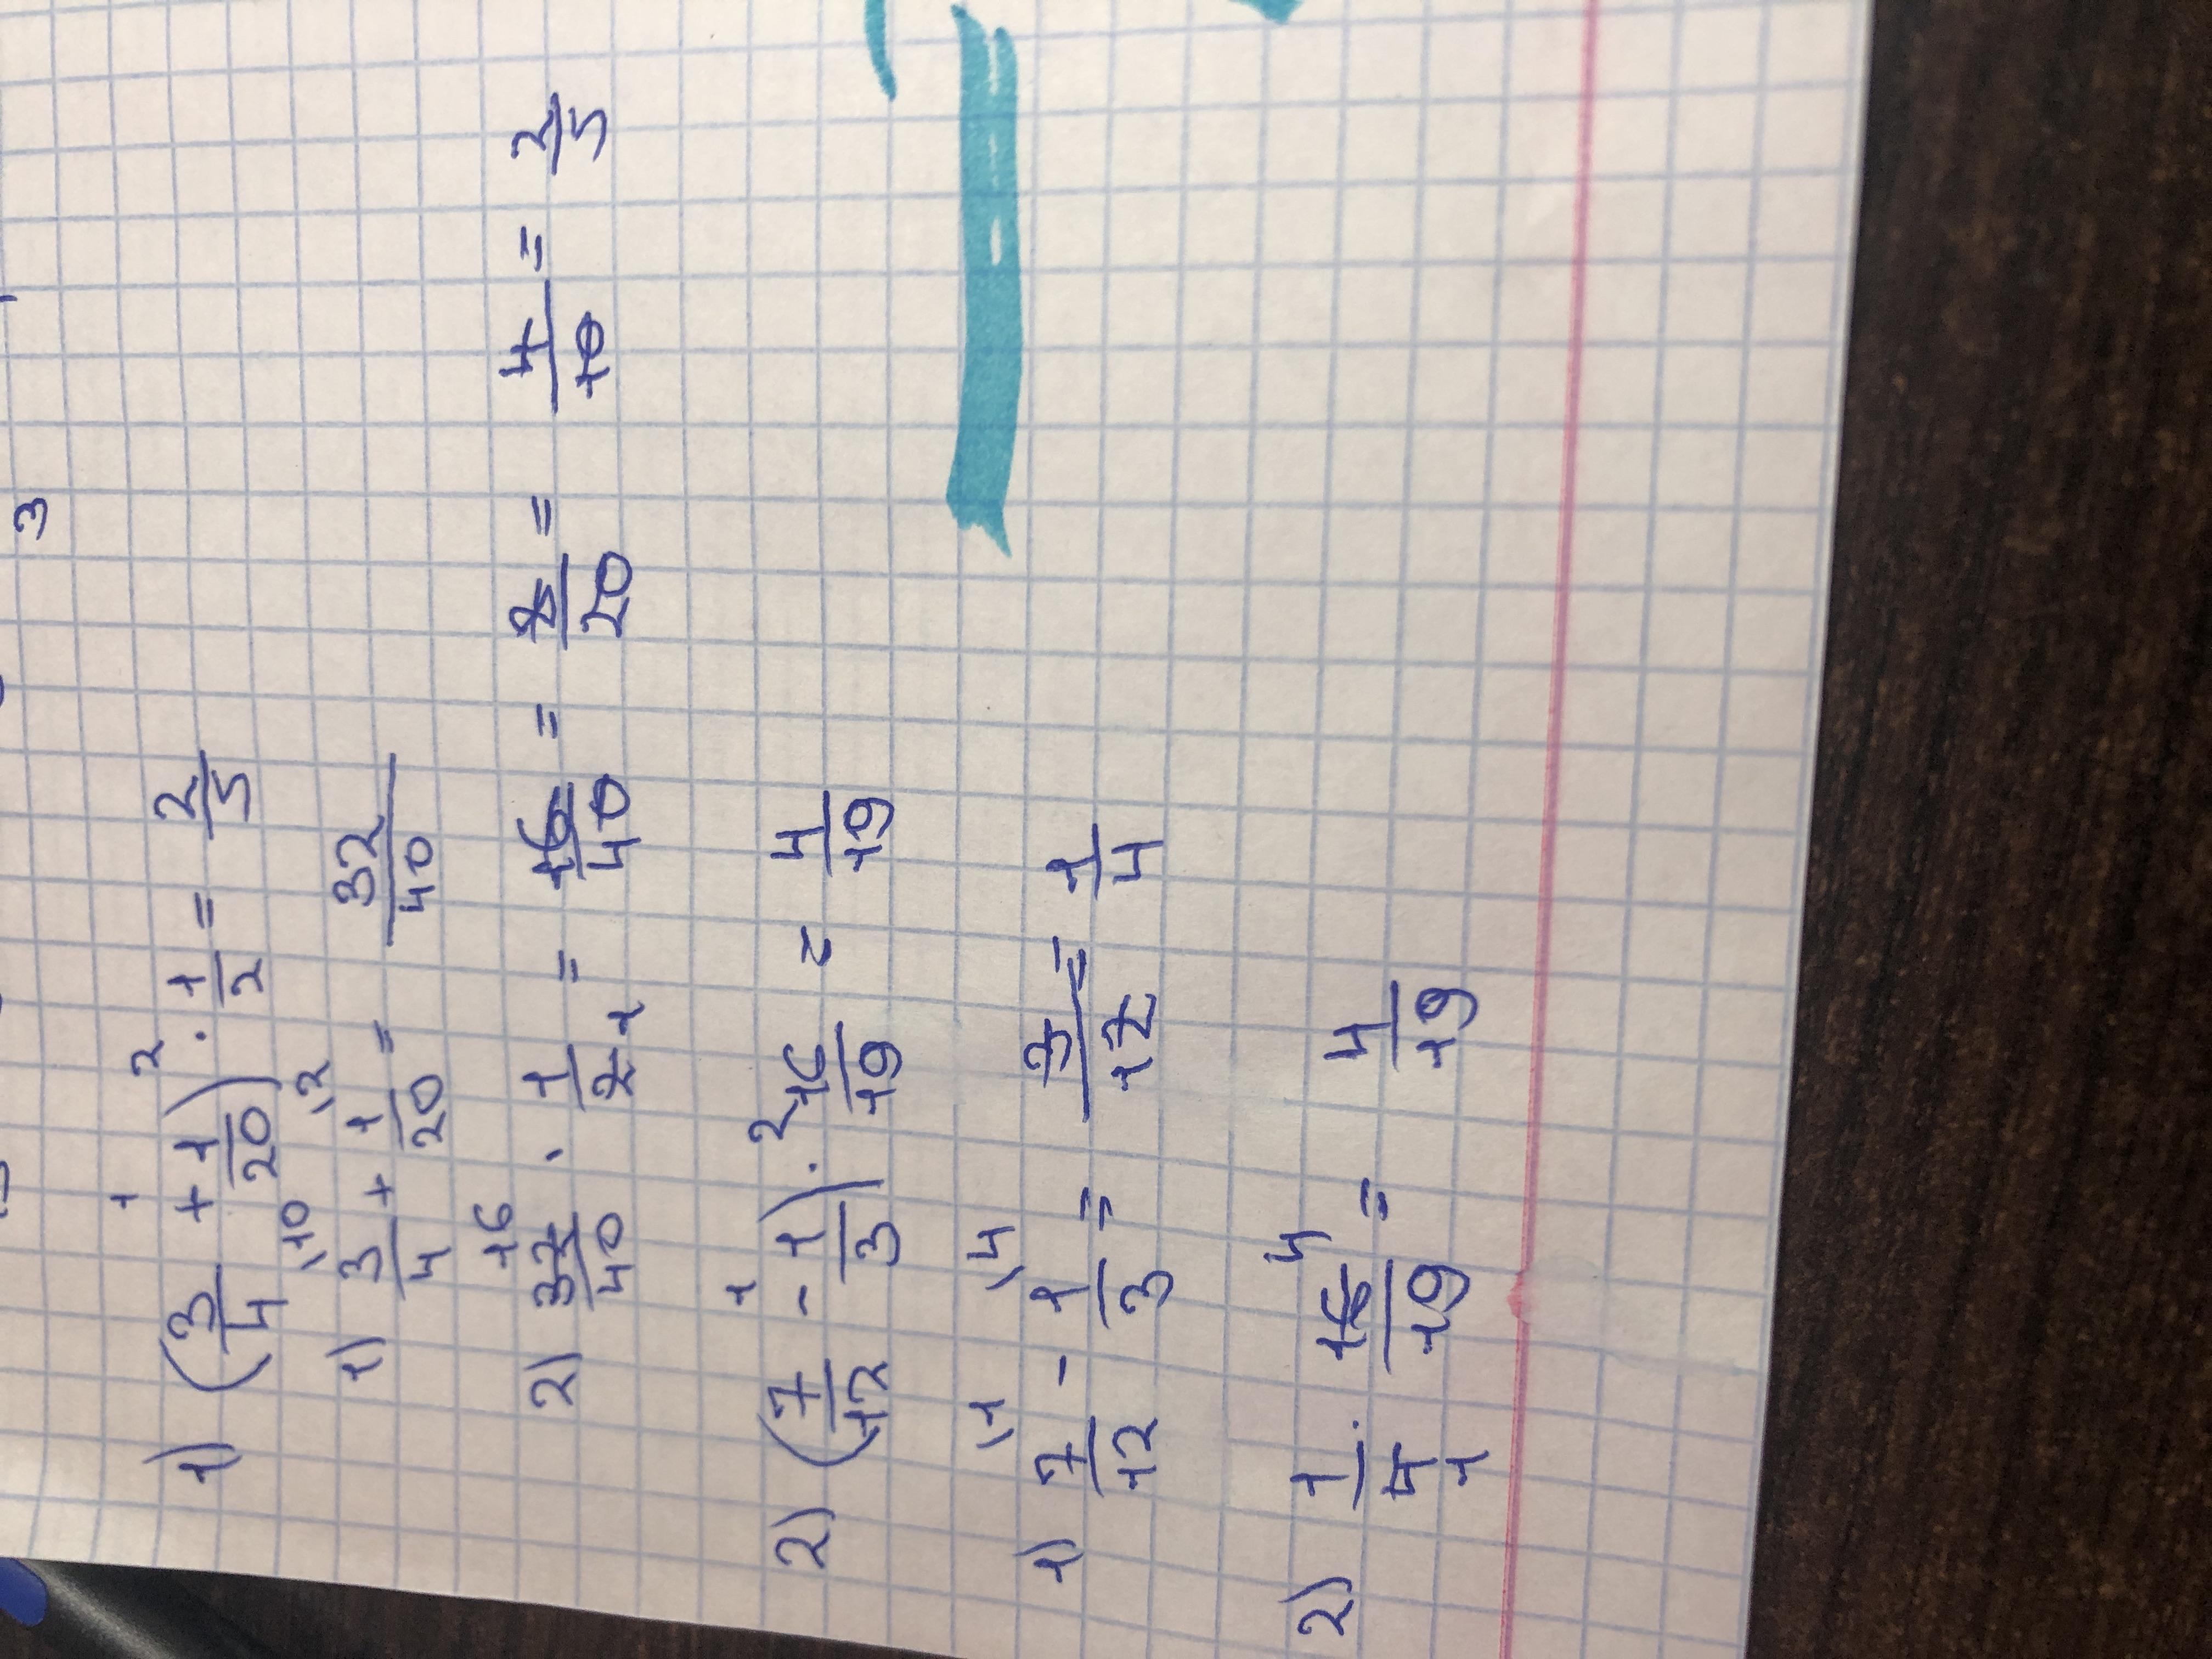 3
1) (3/4 +¹ 1/20) ·² 1/2 = 2/5
1) 3/4 \10 + 1/20 \2 = 32/40
2) 32/40 16 · 1/2 1 = 16/40 = 8/20 = 4/10 = 2/5
2) (7/12 -¹ 1/3) ·² 16/19 = 4/19
1) 7/12 \1 - 1/3 \4 = 3/12 = 1/4
2) 1/4 1 · 16/19 4 = 4/19